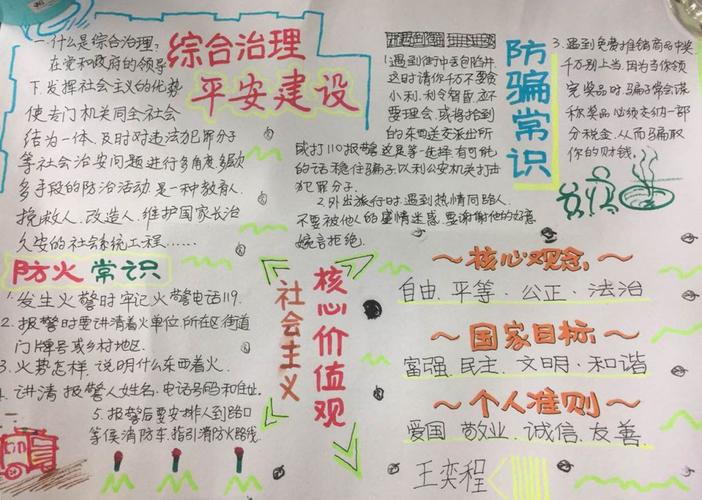 综合治理
平安建设
一.什么是综合治理?
在党和政府的领导
下发挥社会主义的优势
使专门机关同全社会
结为一体.及时对违法犯罪分子
等社会治安问题进行多角度多频
多手段的防治活动是一种教育人.
挽救人.改造人.维护国家长治
久安的社会系统工程……
防骗常识
1.遇到街中丢包陷井.
这时请你千万不要贪
小利.利令智昏.应不
要理会.或将捡到
的东西送交派出所
或打110报警这是第一选择有可能
的话稳住骗子以利公安机关打击
犯罪分子.
2.外出旅行时.遇到热情同路人.
不要被他人的盛情迷惑.要谢谢他的好意
婉言拒绝.
3.遇到免费推销商品中奖.
千万别上当.因为当你领
完奖品时.骗子常会谎
称奖品必须交纳一部
分税金.从而骗取
你的财钱.
防火常识
1.发生火警时牢记火警电话119.
2.报警时要讲清着火单位.所在区街道
门牌号或乡村地区.
3.火势怎样,说明什么东西着火.
4.讲清报警人姓名.电话号码和住址.
5.报警后要安排人到路口
等侯消防车.指引消防火路线.
社会主义
核心价值观
～核心观念～
自由.平等.公正.法治
～国家目标～
富强.民主.文明.和谐
～个人准则～
爱国.敬业.诚信.友善.
王奕程